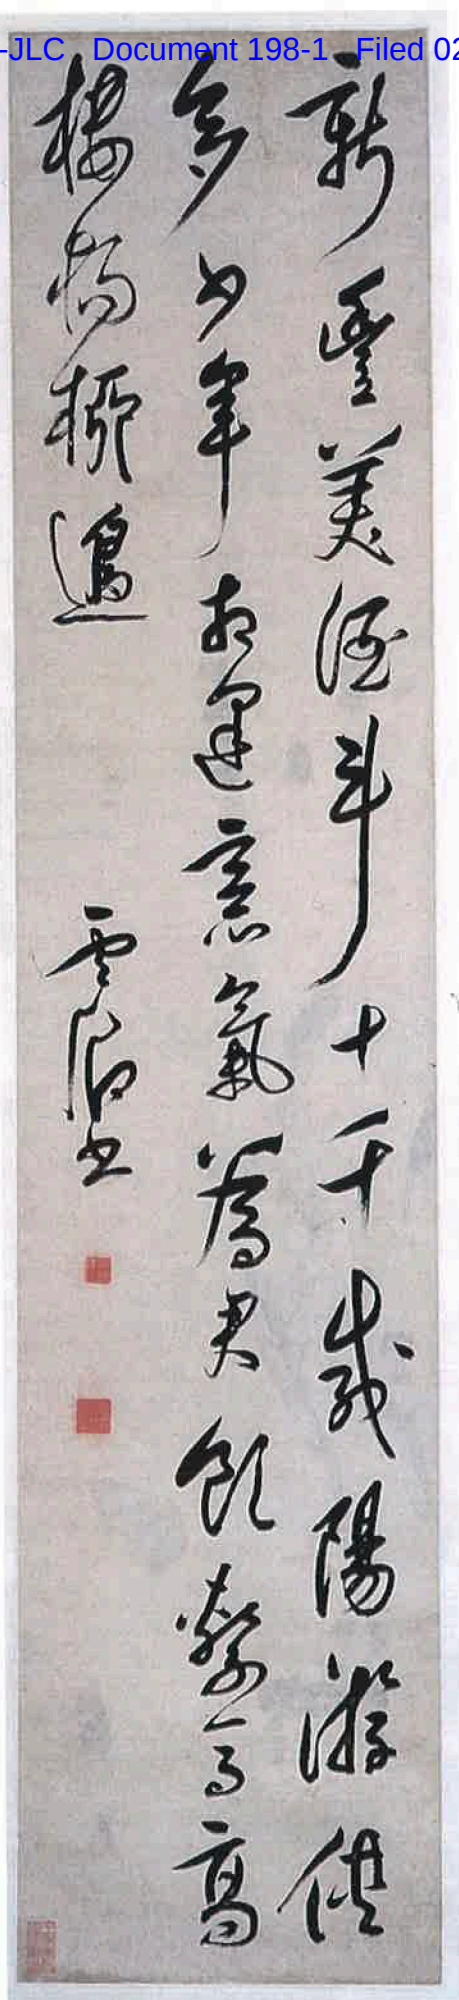 -JLC Document 198-1 Filed 02
新豐美酒斗十千咸陽游俠
多少年相逢意氣為君飲繫馬高
樓楊柳邊
書